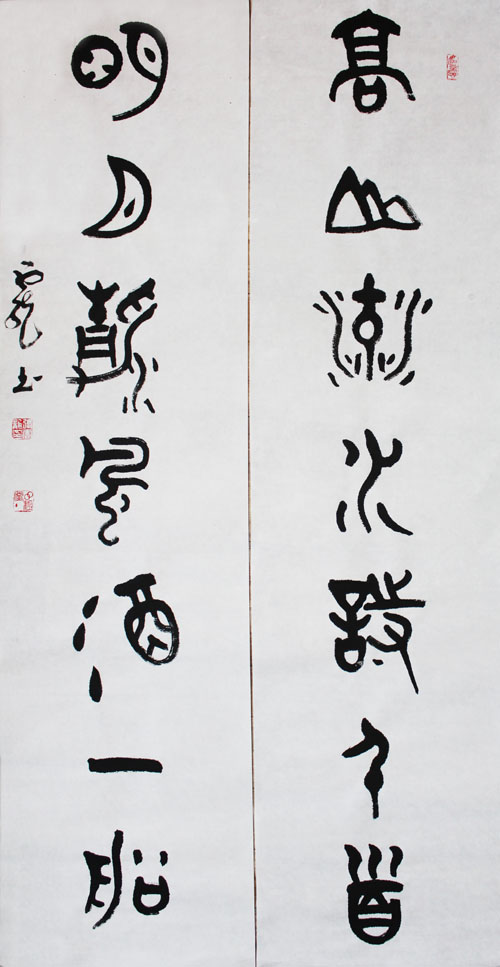 高山流水詩千首
明月清風酒一船